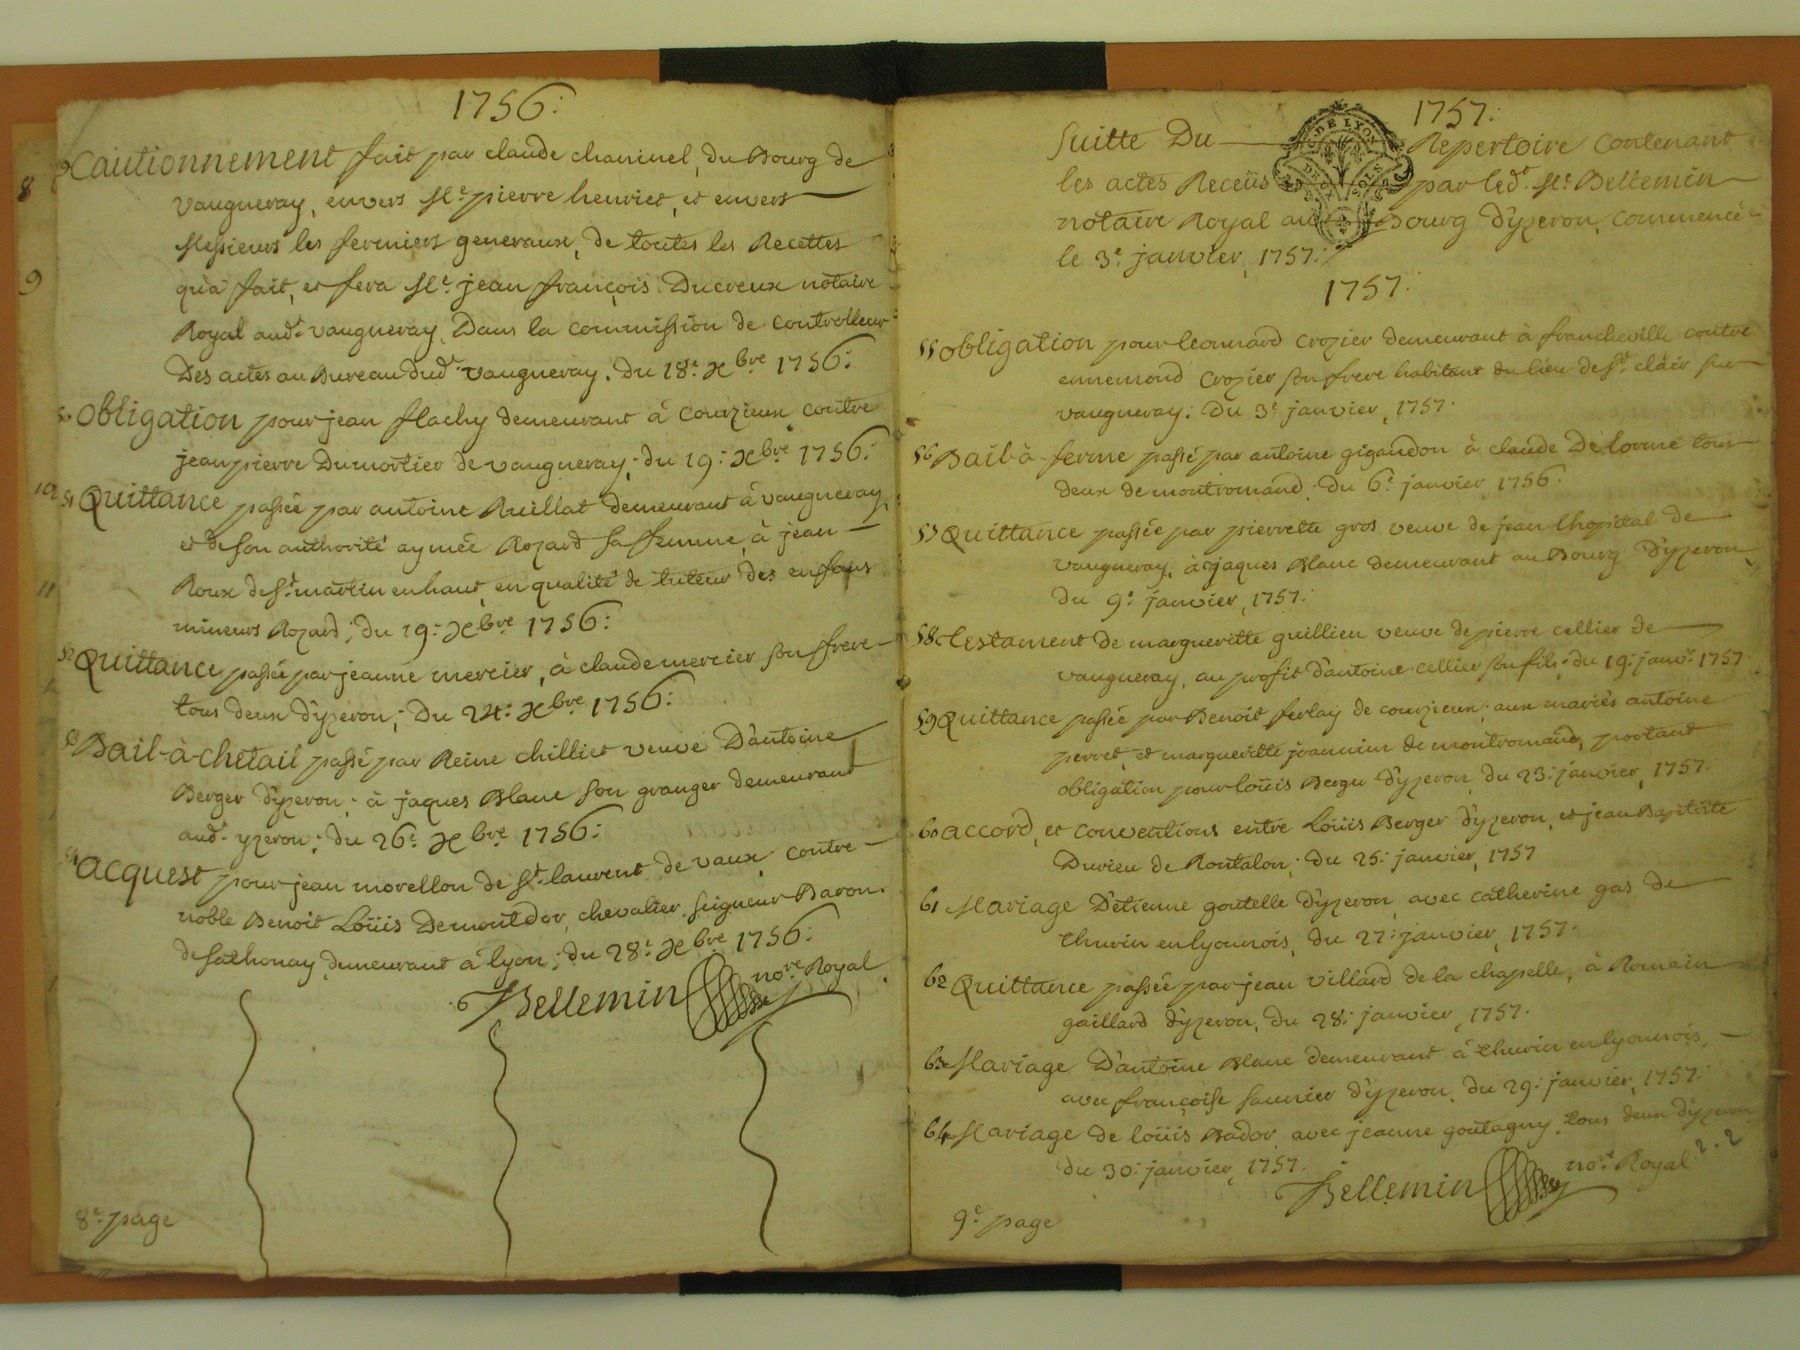 1756:
Cautionnement fait par claude chaninel, du Bourg de
vaugneray, envers Me. pierre henriet, et envers
Messieurs les fermiers generaux, de toutes les Recettes
qu'a fait, et fera Me. jean françois Ducreux notaire
Royal aud.t vaugneray, Dans la commission de controlleur
Des actes au Bureau dud.t vaugneray. Du 18.e Xbre 1756:
50 obligation pour jean flachy demeurant à courzieux contre
jean pierre Dumortier de vaugneray; du 19: Xbre 1756:
51 Quittance passée par antoine Ruillat demeurant à vaugneray
et de son authorité aymée Rozard sa femme, à jean
Roux de St. martin en haut, en qualité de tuteur des enfans
mineurs Rozard; du 19: Xbre 1756:
52 Quittance passée par jeanne mercier, à claude mercier son frere
tous deux d'yzeron; Du 24: Xbre 1756:
53 Bail-à-chetail passé par Reine chilliet veuve D'antoine
Berger d'yzeron; à jaques Blanc son granger demeurant
aud.t yzeron; du 26: Xbre 1756:
54 acquest pour jean morellon de St. laurent de vaux contre
noble Benoit Loüis Demontdor, chevalier, seigneur Baron
de sathonay demeurant à lyon; du 28: Xbre 1756:
Bellemin no.re Royal
8e page
8
9
10
11
1757:
Suitte Du Repertoire Contenant
les actes Receüs par led.t Me. Bellemin
notaire Royal au Bourg d'yzeron, commencé
le 3e. janvier, 1757:
DE LYON
SOLS
1757:
55 obligation pour leonnard crozier demeurant à francheville contre
ennemond crozier son frere habitant du lieu de St. clair sur
vaugneray. Du 3e. janvier, 1757.
56 Bail-à-ferme passé par antoine gigandon à claude Delorme tous
deux de montromand. Du 6e. janvier 1756.
57 Quittance passée par pierrette gros veuve de jean lhopital de
vaugneray, à jaques Blanc demeurant au Bourg d'yzeron
du 9: janvier, 1757:
58 Testament de margueritte guillieu veuve de pierre cellier de
vaugneray, au profit d'antoine cellier son fils; du 19: janv.r 1757
59 Quittance passée par Benoit ferlay de courzieux; aux mariés antoine
perret, et margueritte joannin de montromand, portant
obligation pour loüis Berger d'yzeron, du 23: janvier, 1757.
60 accord, et conventions entre Loüis Berger d'yzeron, et jean Baptiste
Durieu de Rontalon; du 25: janvier, 1757
61 Mariage D'etienne goutelle d'yzeron, avec catherine gas de
thurin en lyonnois, du 27: janvier, 1757.
62 Quittance passée par jean villard de la chapelle, à Romain
gaillard d'yzeron, du 28: janvier, 1757.
63 Mariage D'antoine Blanc demeurant à thurin en lyonnois,
avec françoise saunier d'yzeron, du 29: janvier, 1757:
64 Mariage de loüis Bador, avec jeanne goutagny, tous deux d'yzeron
du 30: janvier, 1757.
Bellemin no.re Royal
9e page